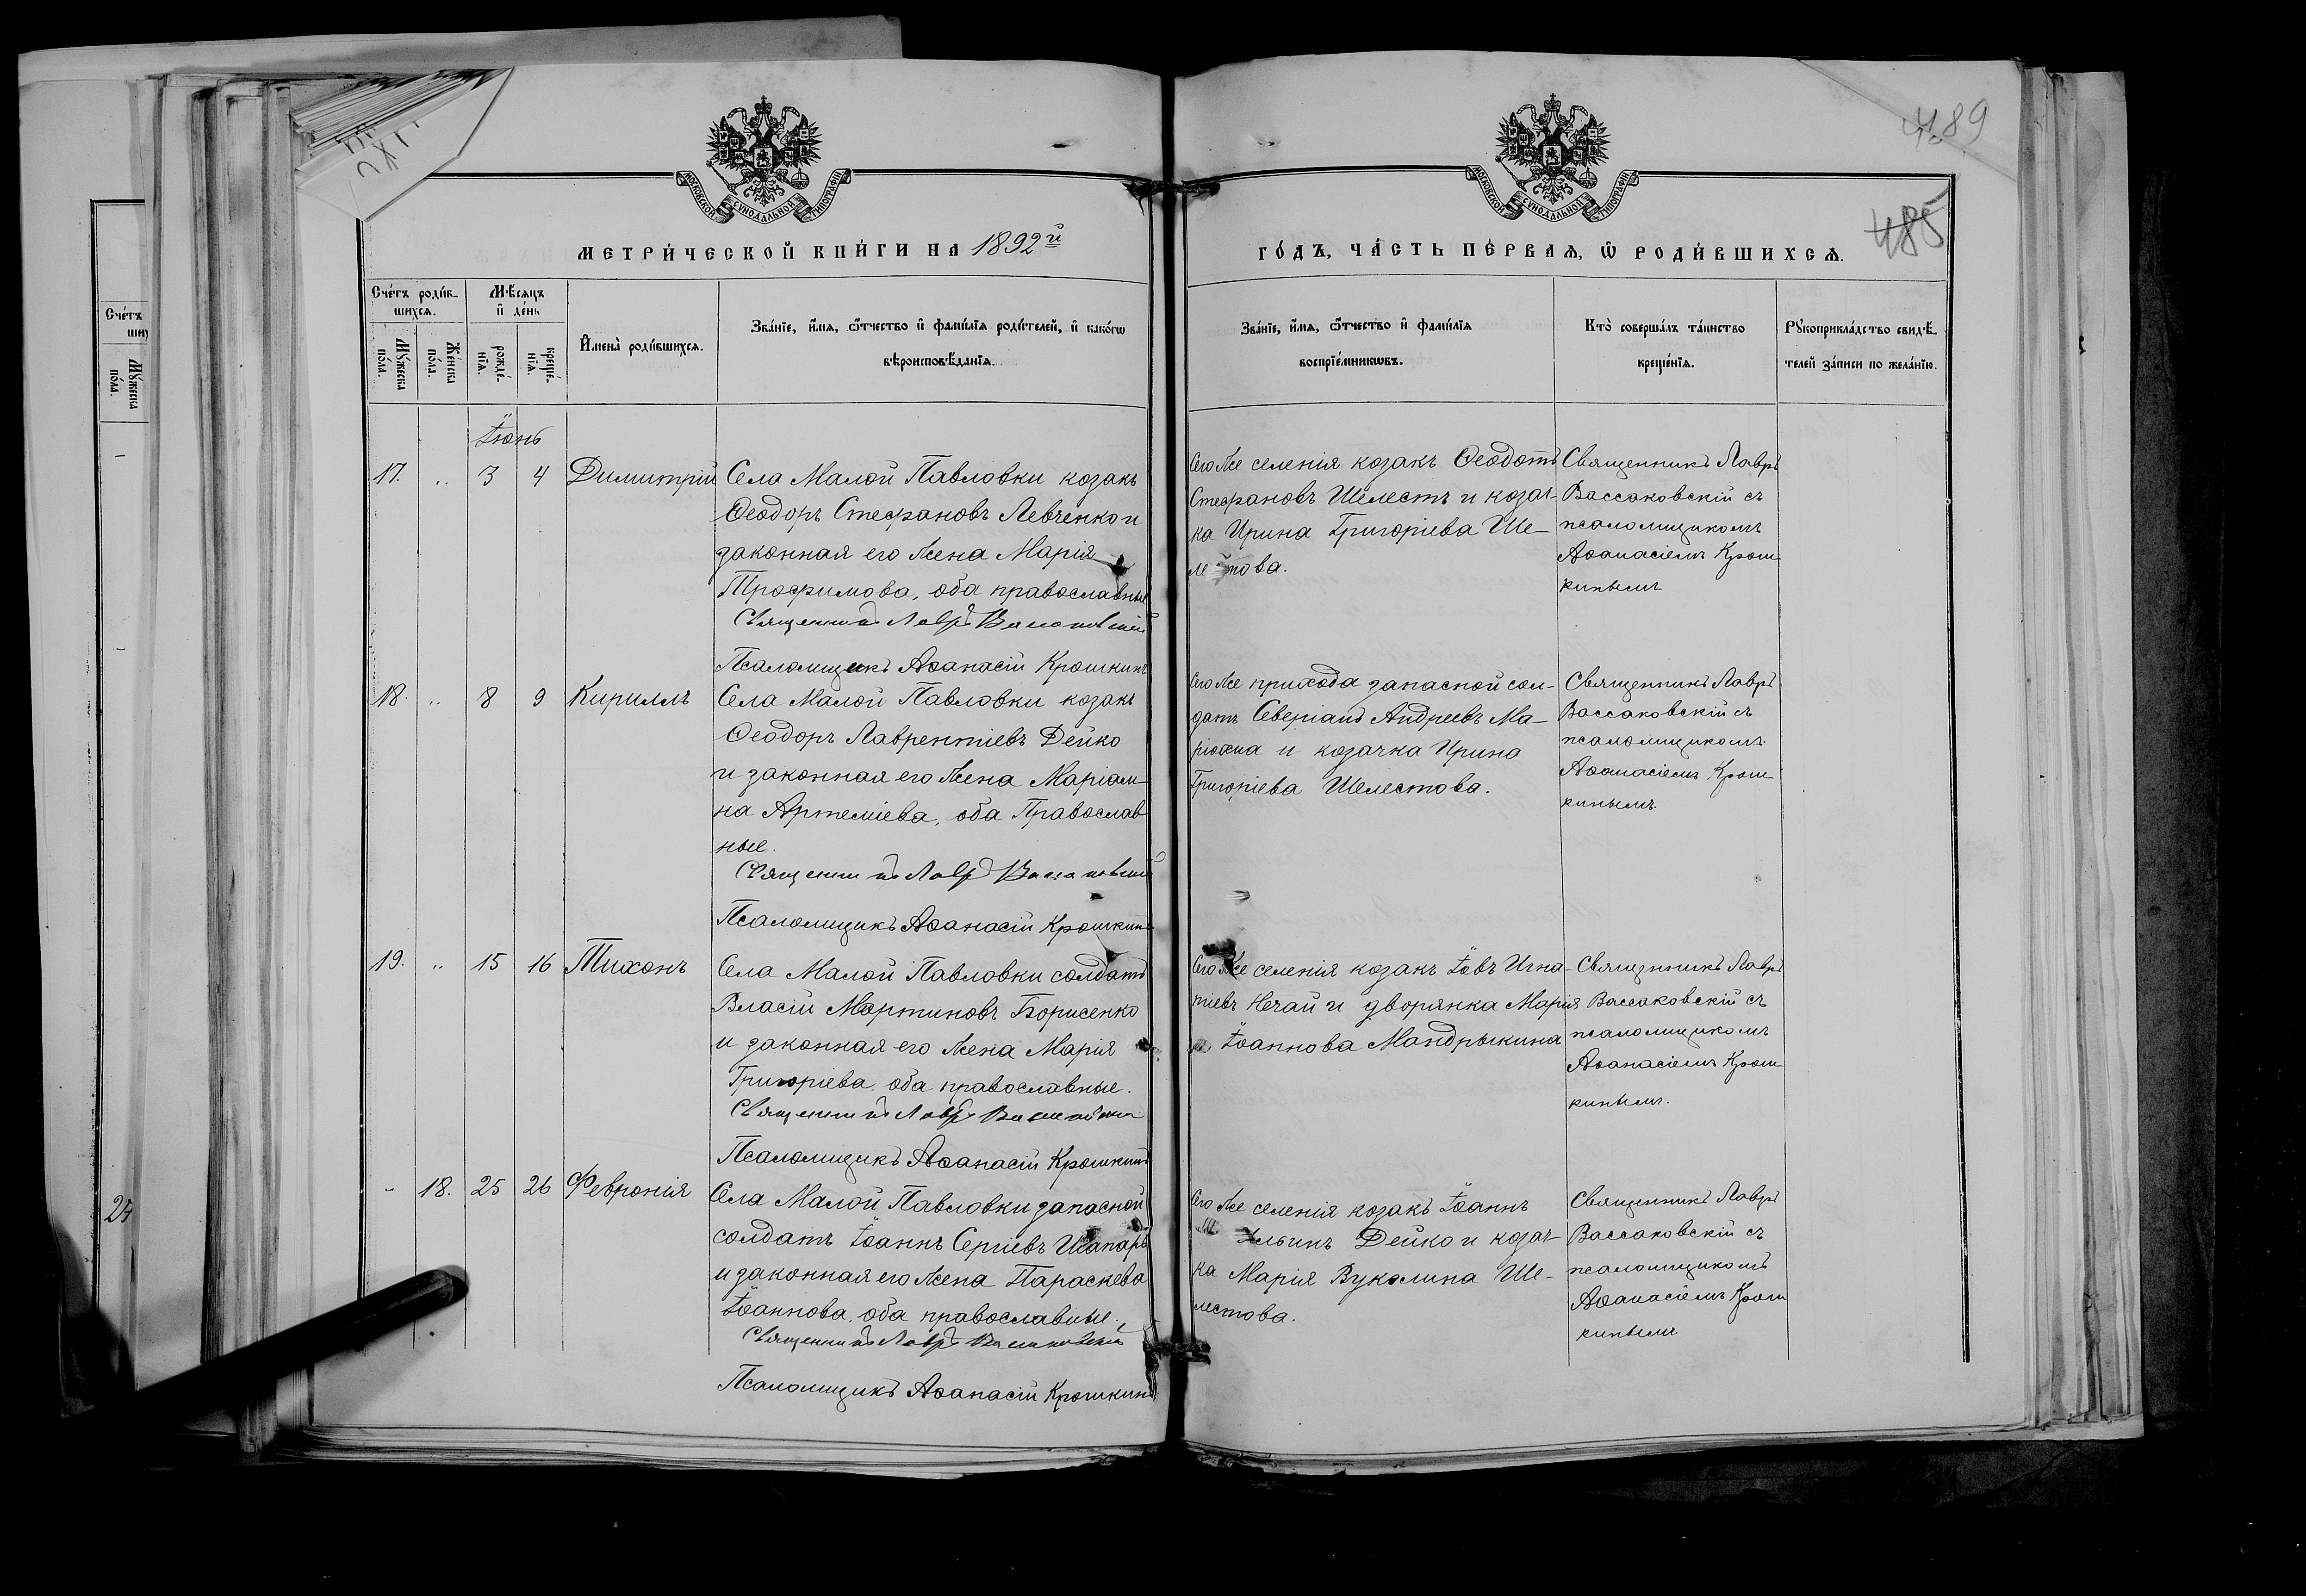 489
485
МОСКОВСКОЙ СѴНОДАЛЬНОЙ ТИПОГРАФІИ
МОСКОВСКОЙ СѴНОДАЛЬНОЙ ТИПОГРАФІИ
МЕТРИ́ЧЕСКОЙ КНИ́ГИ НА 1892й
ГО́ДЪ, ЧА́СТЬ ПЕ́РВАѦ, Ѽ РОДИ́ВШИХСѦ.
Сче́тъ роди́в-
шихсѧ.
Мꙋ́жеска по́ла.
Же́нска по́ла.
Мѣ́сѧцъ
и҆ де́нь
рожде́-
нїѧ.
креще́-
нїѧ.
И҆мена̀ роди́вшихсѧ.
Зва́нїе, и҆́мѧ, ѻ҆́тчество и҆ фами́лїѧ роди́телей, и҆ како́гѡ
вѣроисповѣ́данїѧ.
Зва́нїе, и҆́мѧ, ѻ҆́тчество и҆ фами́лїѧ
воспрїе́мникѡвъ.
Кто̀ соверша́лъ та́инство
креще́нїѧ.
Рꙋкоприкла́дство свидѣ́-
телей за́писи по жела́нїю.
Сче́тъ
Мꙋ́жеска по́ла.
24
Іюнь
17. „ 3 4 Димитрій
Села Малой Павловки козакъ
Ѳеодоръ Стефановъ Левченко и
законная его жена Марія
Трофимова, оба православные
Священникъ Лавръ Вассаковскій
Псаломщикъ Аѳанасій Крошкинъ
Сего же селенія козакъ Ѳеодотъ
Стефановъ Шелестъ и козач-
ка Ирина Григоріева Ше-
това.
Священникъ Лавръ
Вассаковскій съ
псаломщикомъ
Аѳанасіемъ Крош
кинымъ
18. „ 8 9 Кириллъ
Села Малой Павловки козакъ
Ѳеодоръ Лаврентіевъ Дейко
и законная его жена Маріам-
на Артеміева, оба Православ
ные.
Священникъ Лавръ Вассаковскій
Псаломщикъ Аѳанасій Крошкинъ
Сего же прихода запасной сол-
датъ Северіанъ Андреевъ Ма-
рюхна и козачка Ирина
Григоріева Шелестова.
Священникъ Лавръ
Вассаковскій съ
псаломщикомъ
Аѳанасіемъ Крош
кинымъ.
19. „ 15 16 Тихонъ
Села Малой Павловки солдатъ
Власій Мартиновъ Борисенко
и законная его жена Марія
Григоріева оба православные.
Священникъ Лавръ Вассаковскій
Псаломщикъ Аѳанасій Крошкинъ
Сего же селенія козакъ Іовъ Игна-
тіевъ Нечай и дворянка Марія
Іоаннова Мандрыкина
Священникъ Лавръ
Вассаковскій съ
псаломщикомъ
Аѳанасіемъ Крош
кинымъ.
„ 18. 25 26 Февронія
Села Малой Павловки запасной
солдатъ Іоаннъ Сергіевъ Шапарь
и законная его жена Параскева
Іоаннова, оба православные.
Священникъ Лавръ Вассаковскій
Псаломщикъ Аѳанасій Крошкинъ
Сего же селенія козакъ Іоаннъ
Дейко и козач-
ка Марія Вуколина Ше-
лестова.
Священникъ Лавръ
Вассаковскій съ
псаломщикомъ
Аѳанасіемъ Крош
кинымъ